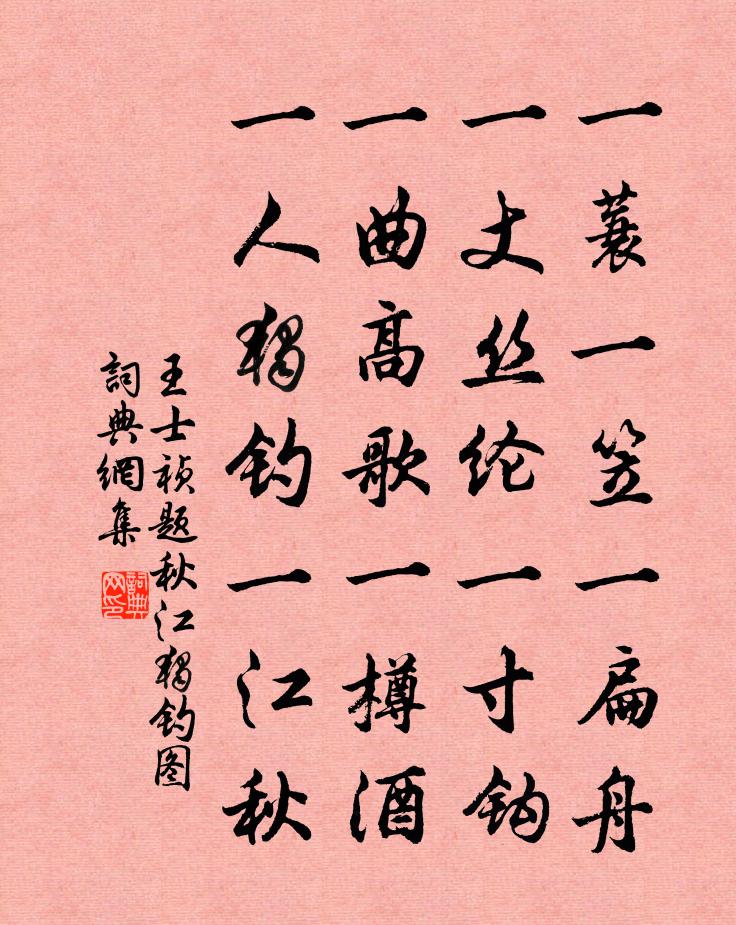 一蓑一笠一扁舟
一丈丝纶一寸钩
一曲高歌一樽酒
一人独钓一江秋
王士祯题秋江独钓图
詞典網集
詞典网印